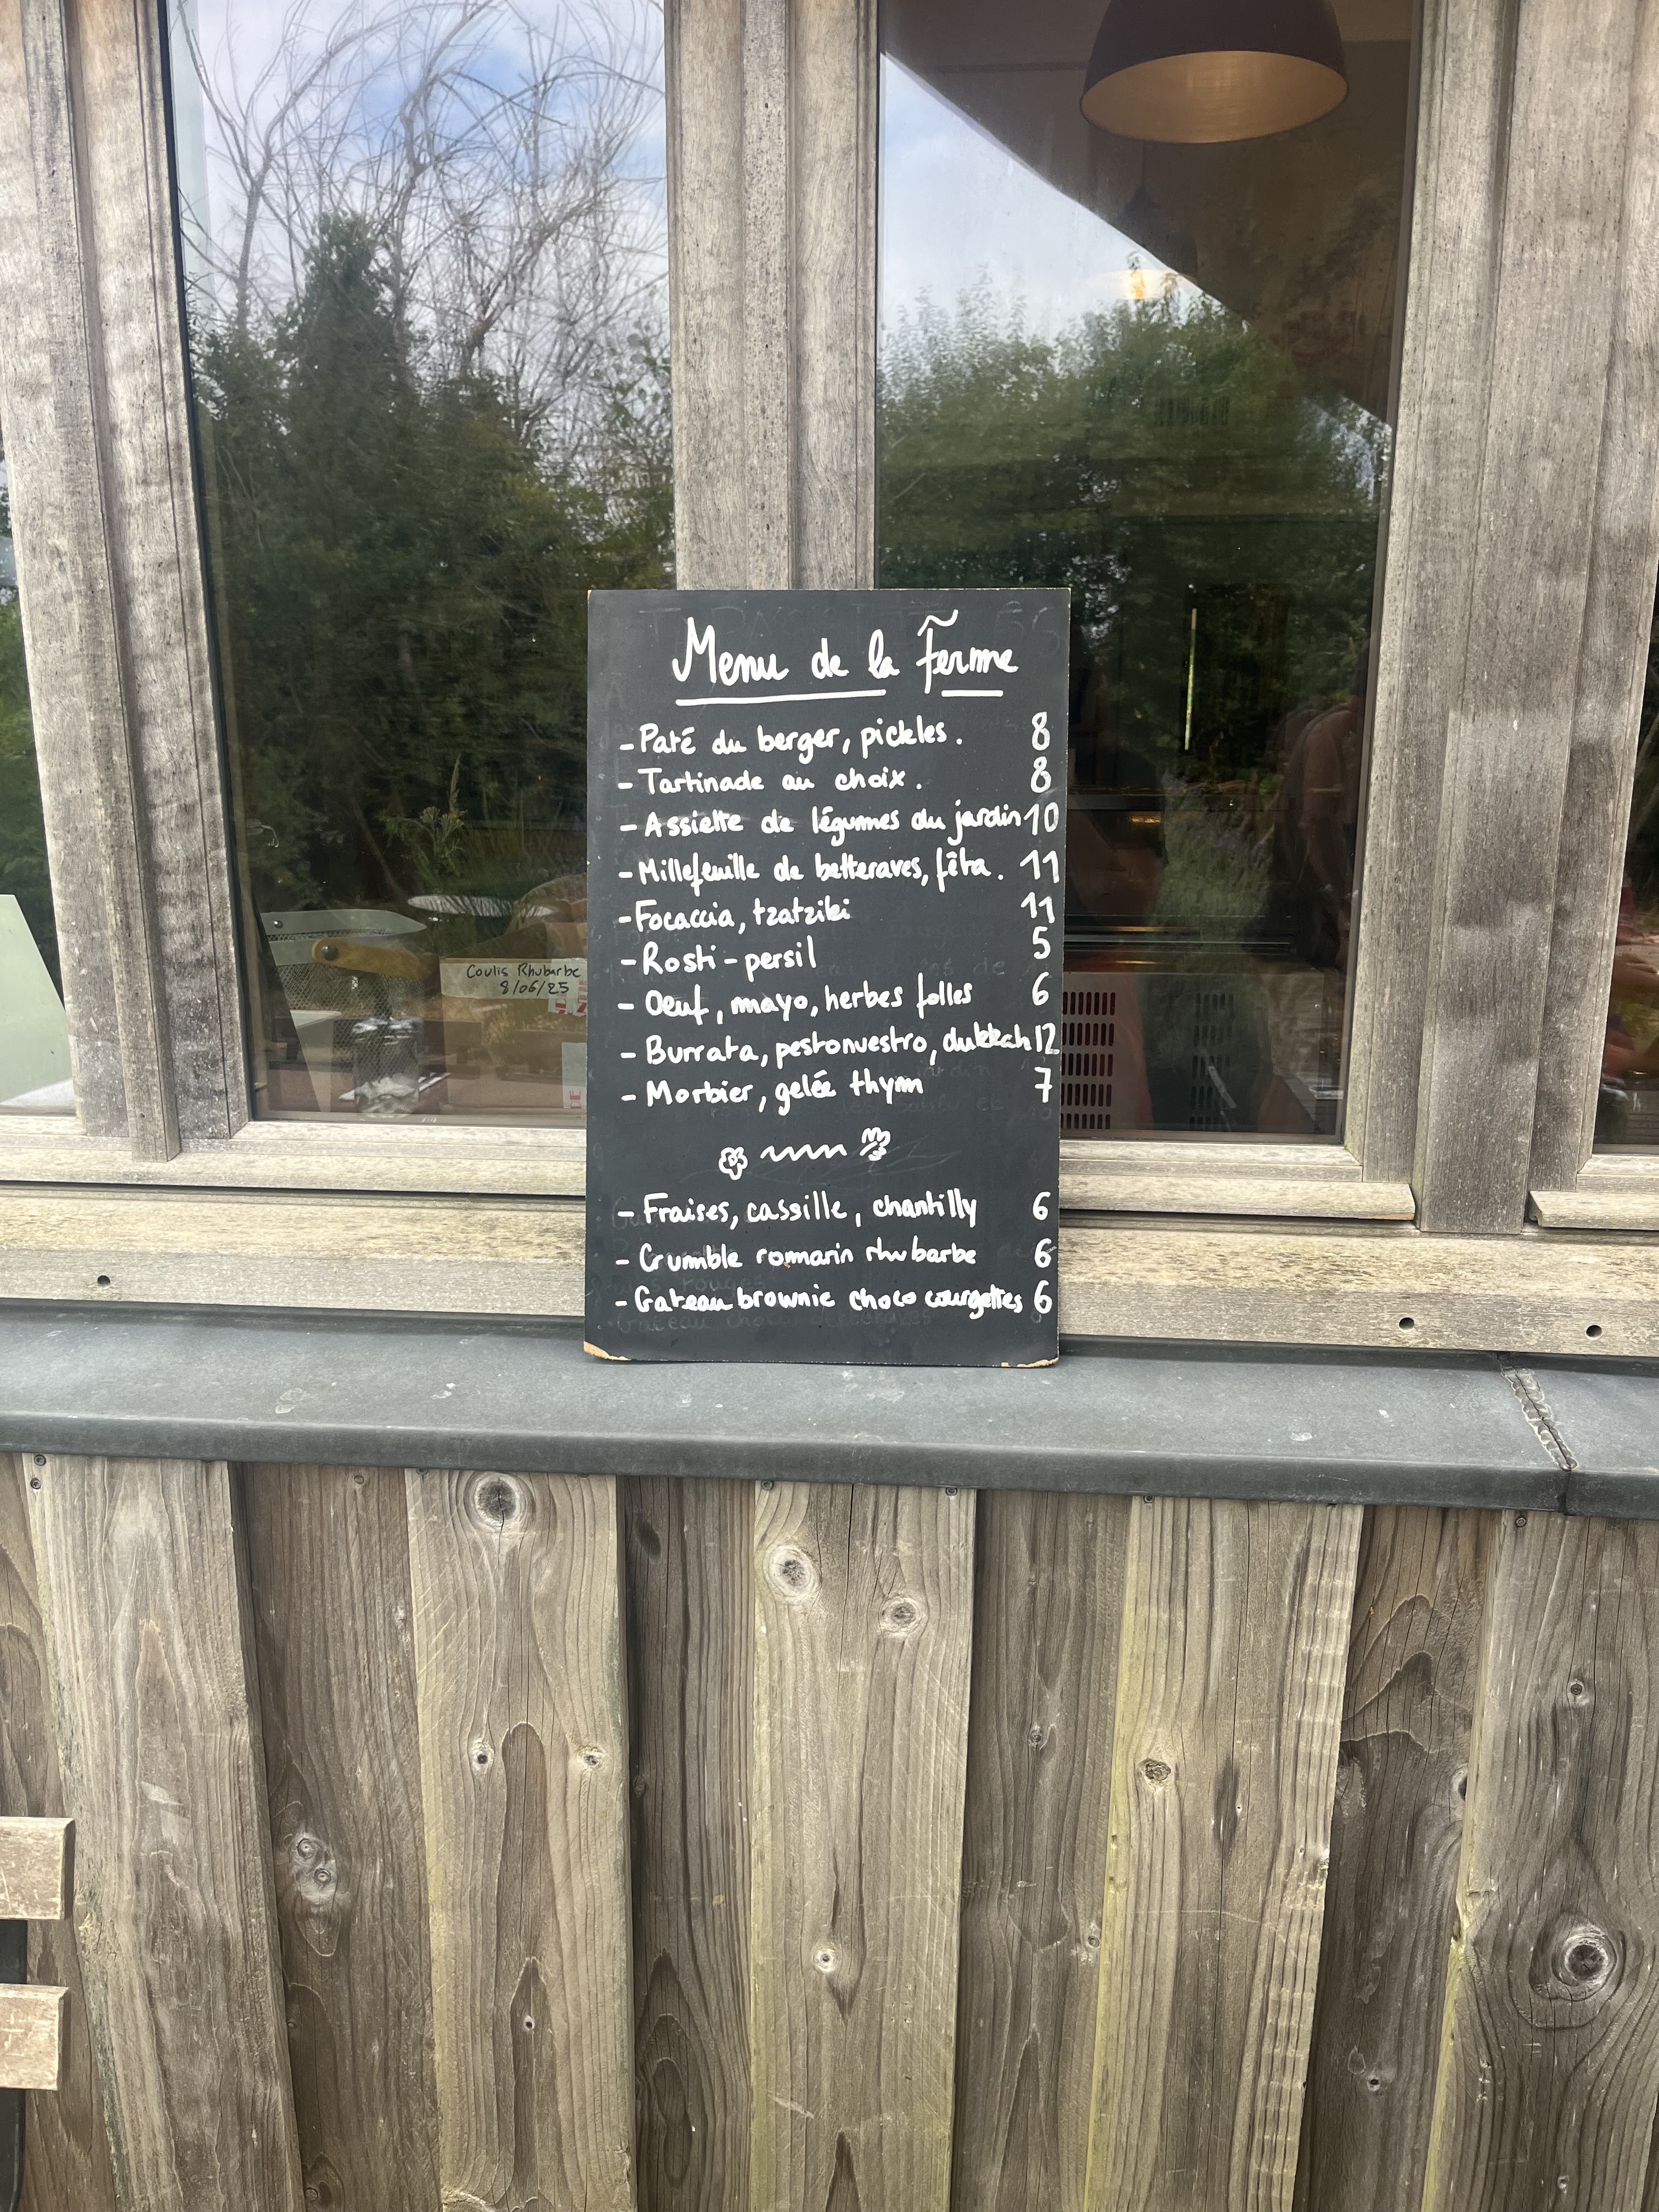 Menu de la Ferme
- Paté du berger, pickles. 8
- Tartinade au choix. 8
- Assiette de légumes du jardin 10
- Millefeuille de betteraves, fêta. 11
- Focaccia, tzatziki 11
- Rosti - persil 5
- Oeuf, mayo, herbes folles 6
- Burrata, pestonuestro, dukkah 12
- Morbier, gelée thym 7
- Fraises, cassille, chantilly 6
- Crumble romarin rhubarbe 6
- Gateau brownie choco courgettes 6
Coulis Rhubarbe
8/06/25